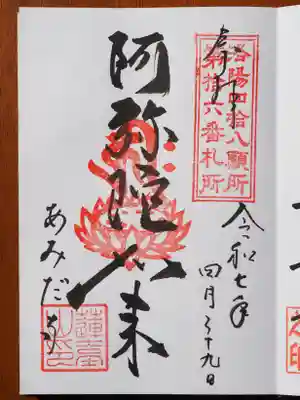 奉拝
洛陽四拾八願所
第拾六番札所
令和七年
四月二十九日
阿弥陀如来
あみだ寺
蓮臺